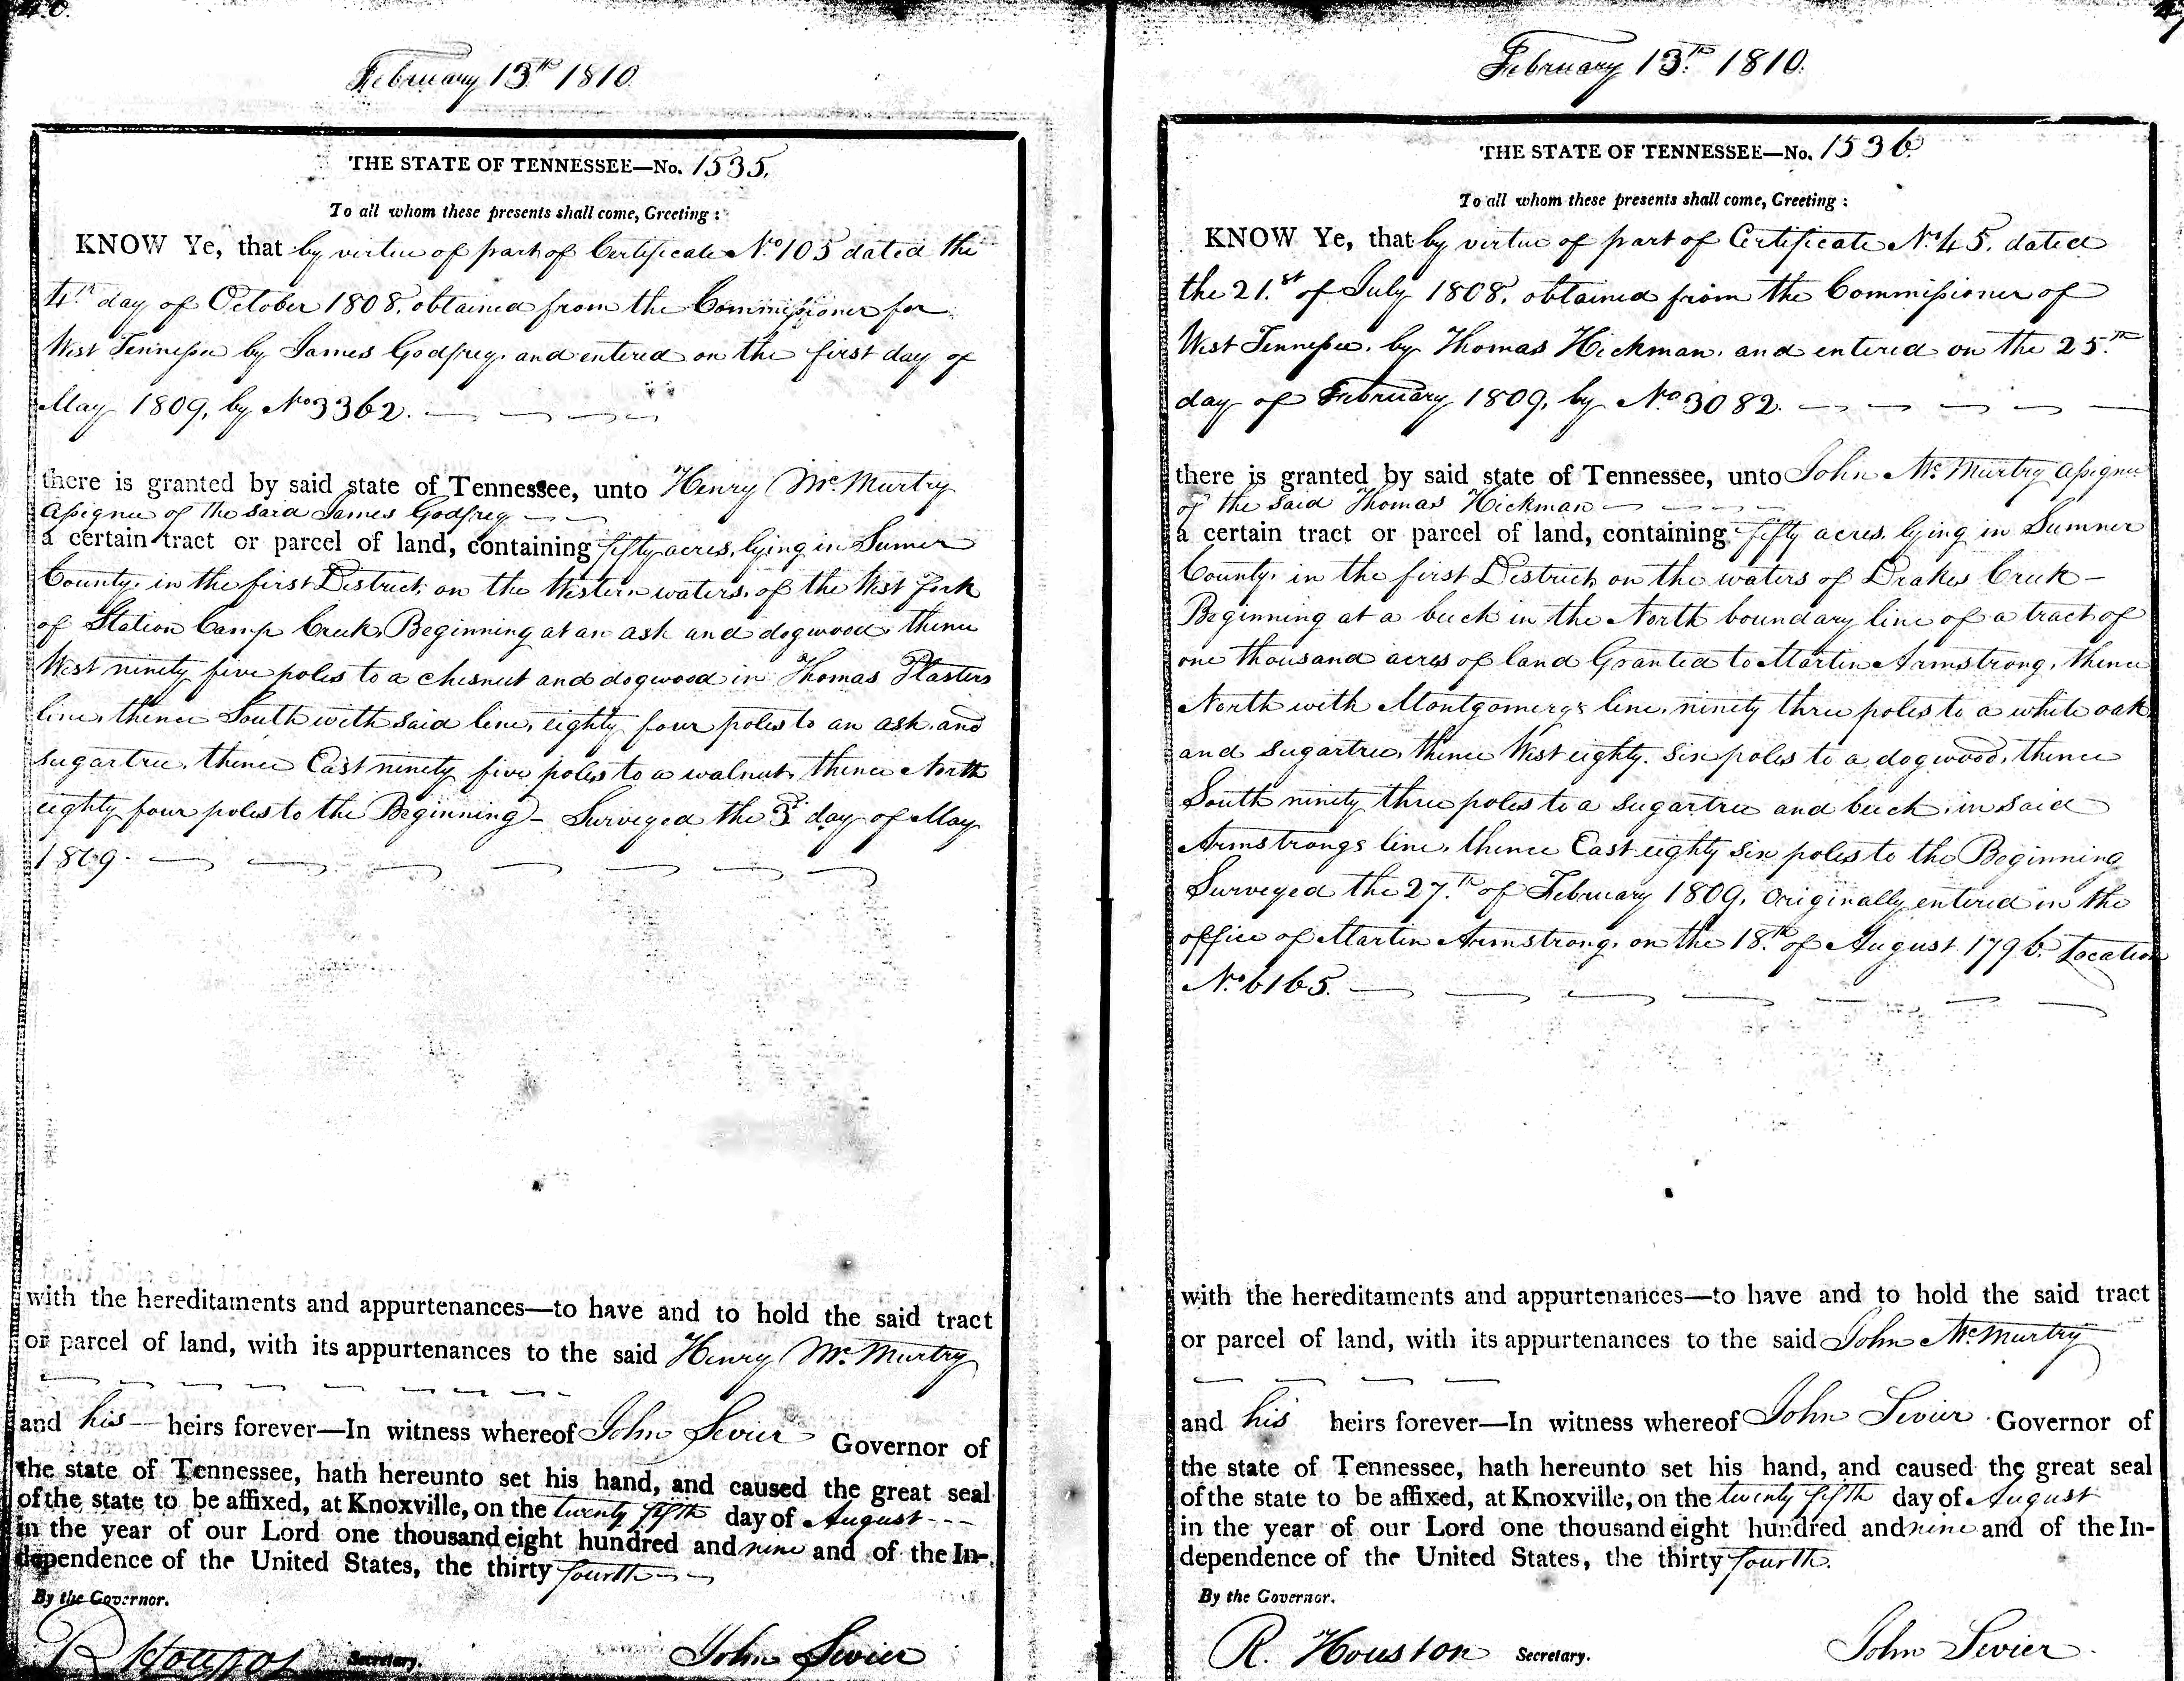 February 13th 1810.
THE STATE OF TENNESSEE—No. 1535.
To all whom these presents shall come, Greeting:
KNOW Ye, that by virtue of part of Certificate No. 105 dated the
4th day of October 1808. obtained from the Commissioner for
West Tennessee by James Godfrey. and entered on the first day of
May 1809, by No 3362.
there is granted by said state of Tennessee, unto Henry McMurtry
Assignee of the said James Godfrey
a certain tract or parcel of land, containing fifty acres, lying in Sumer
County. in the first District, on the Western waters, of the West fork
of Station Camp Creek, Beginning at an ash and dogwood, thence
West ninety five poles to a chesnut and dogwood in Thomas Flasters
line, thence South with said line, eighty four poles to an ash, and
sugartree, thence East ninety five poles to a walnut, thence North
eighty four poles to the Beginning – Surveyed the 3d day of May
1809.
with the hereditaments and appurtenances—to have and to hold the said tract
or parcel of land, with its appurtenances to the said Henry McMurtry
and his heirs forever—In witness whereof John Sevier Governor of
the state of Tennessee, hath hereunto set his hand, and caused the great seal
of the state to be affixed, at Knoxville, on the twenty fifth day of August
in the year of our Lord one thousand eight hundred and nine and of the In-
dependence of the United States, the thirty fourth
By the Governor.
R Houston Secretary. John Sevier
February 13th 1810.
THE STATE OF TENNESSEE—No. 1536.
To all whom these presents shall come, Greeting:
KNOW Ye, that by virtue of part of Certificate No. 45. dated
the 21.st of July 1808. obtained from the Commissioner of
West Tennessee. by Thomas Hickman. and entered on the 25.th
day of February 1809, by No. 3082.
there is granted by said state of Tennessee, unto John McMurtry Assignee
of the said Thomas Hickman
a certain tract or parcel of land, containing fifty acres. lying in Sumner
County. in the first District, on the waters of Drakes Creek –
Beginning at a beech in the North boundary line of a tract of
one thousand acres of land Granted to Martin Armstrong, thence
North with Montgomerys line, ninety three poles to a white oak
and sugartree, thence West eighty. six poles to a dogwood, thence
South ninety three poles to a sugartree and beech, in said
Armstrongs line, thence East eighty six poles to the Beginning
Surveyed the 27.th of February 1809. Originally entered in the
office of Martin Armstrong. on the 18.th of August 1796. Location
No. 6165.
with the hereditaments and appurtenances—to have and to hold the said tract
or parcel of land, with its appurtenances to the said John McMurtry
and his heirs forever—In witness whereof John Sevier Governor of
the state of Tennessee, hath hereunto set his hand, and caused the great seal
of the state to be affixed, at Knoxville, on the twenty fifth day of August
in the year of our Lord one thousand eight hundred and nine and of the In-
dependence of the United States, the thirty fourth.
By the Governor.
R. Houston Secretary. John Sevier